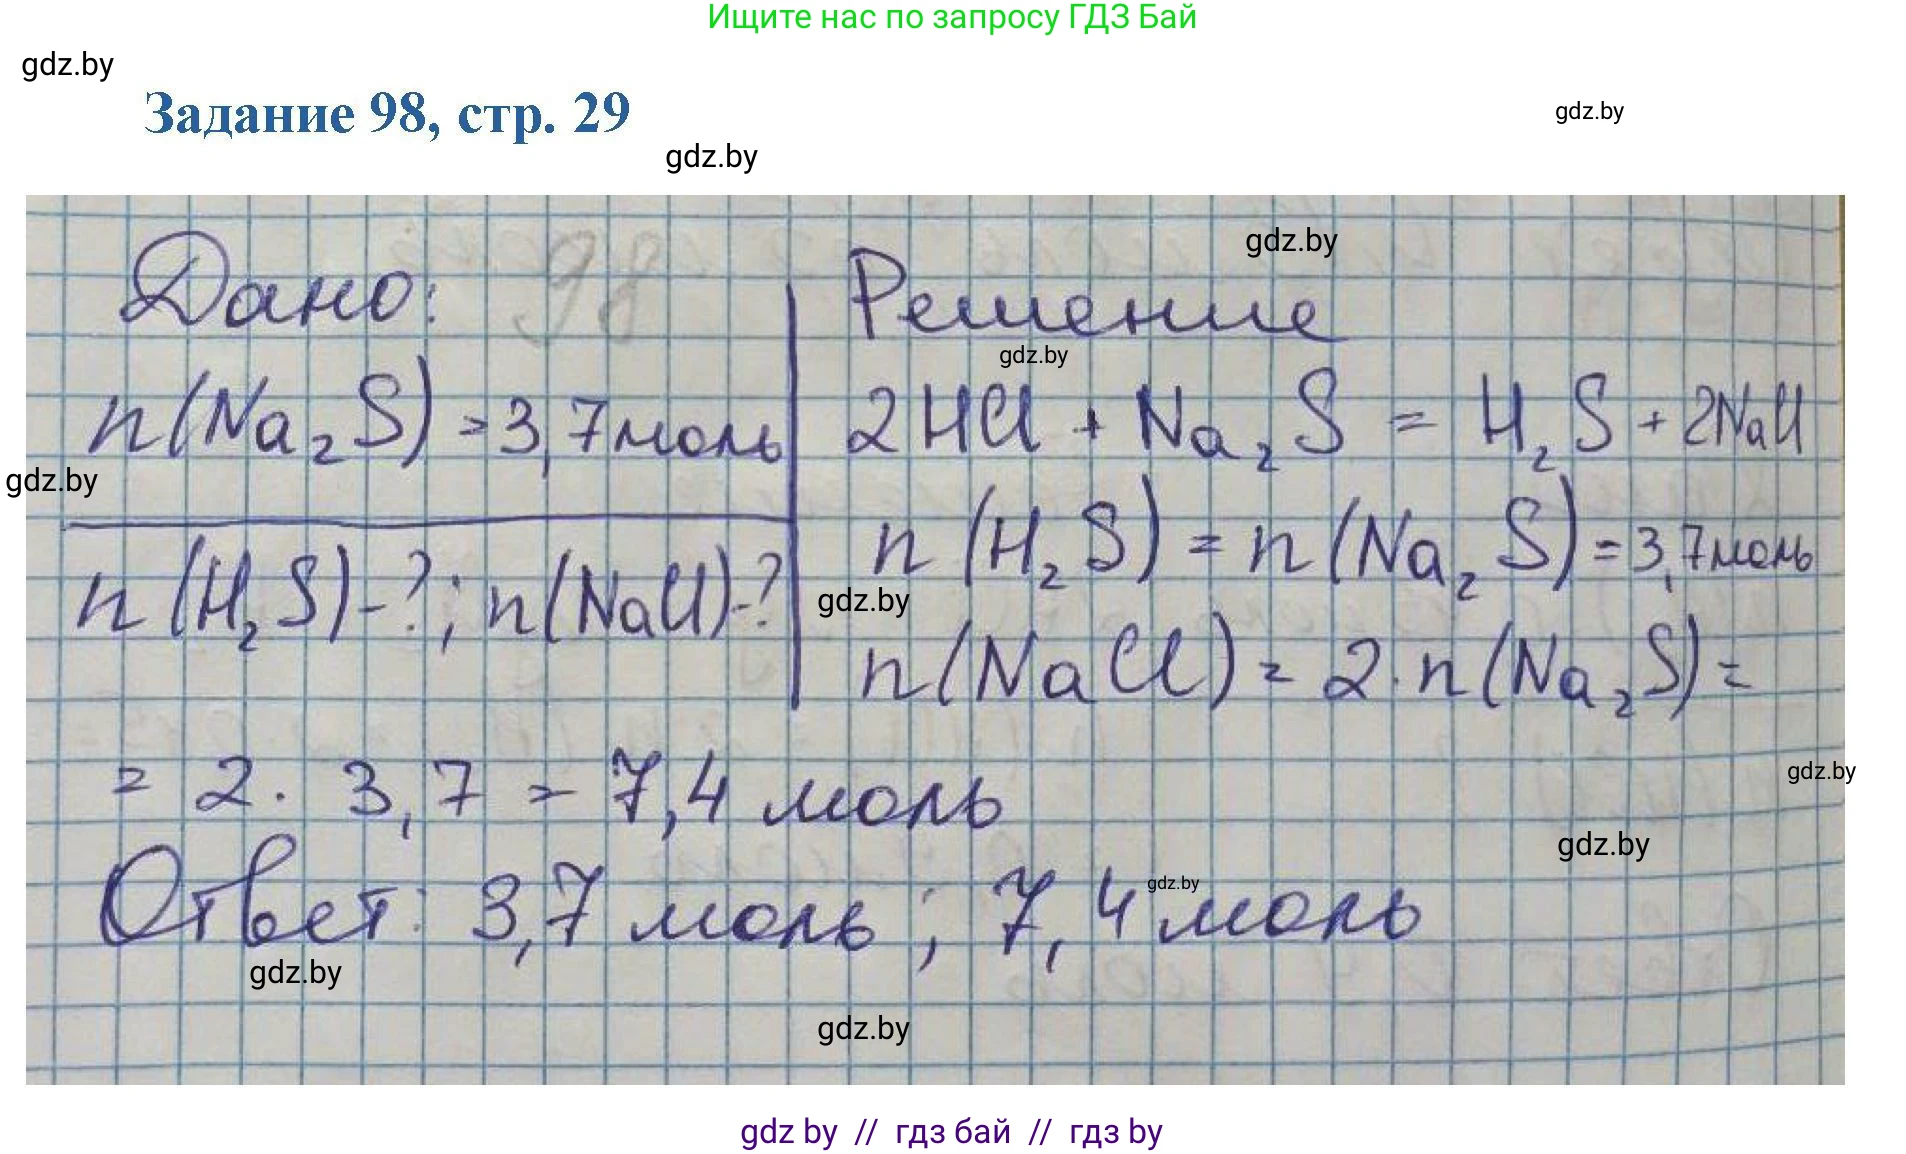 Ищите нас по запросу ГДЗ Бай
gdz.by
Задание 98, стр. 29
gdz.by
gdz.by
gdz.by
Дано:
98
Решение
gdz.by
n(Na₂S) = 3,7 моль
2HCl + Na₂S = H₂S + 2NaCl
gdz.by
n(H₂S) = n(Na₂S) = 3,7 моль
n(H₂S) - ?; n(NaCl) - ?
gdz.by
n(NaCl) = 2 · n(Na₂S) =
= 2 · 3,7 = 7,4 моль
gdz.by
gdz.by
Ответ: 3,7 моль; 7,4 моль
gdz.by
gdz.by
gdz.by
gdz by // гдз бай // гдз by